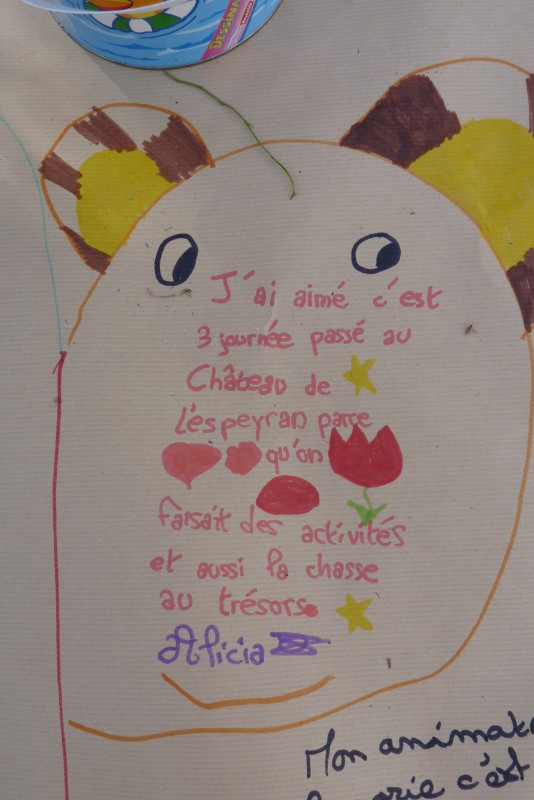 DESSINA
J'ai aimé c'est
3 journée passé au
Château de
L'espeyran parce
qu'on
farsait des activités
et aussi la chasse
au trésors.
Alicia
Mon animat
c'est